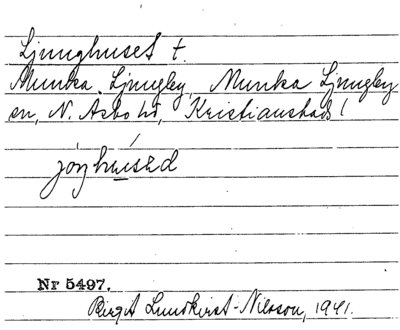 Ljunghuset t.
Munka Ljungby, Munka Ljungby
sn, N. Åsbo hd, Kristianstads l
Nr 5497.
Birgit Lundkvist-Nilsson, 1941.